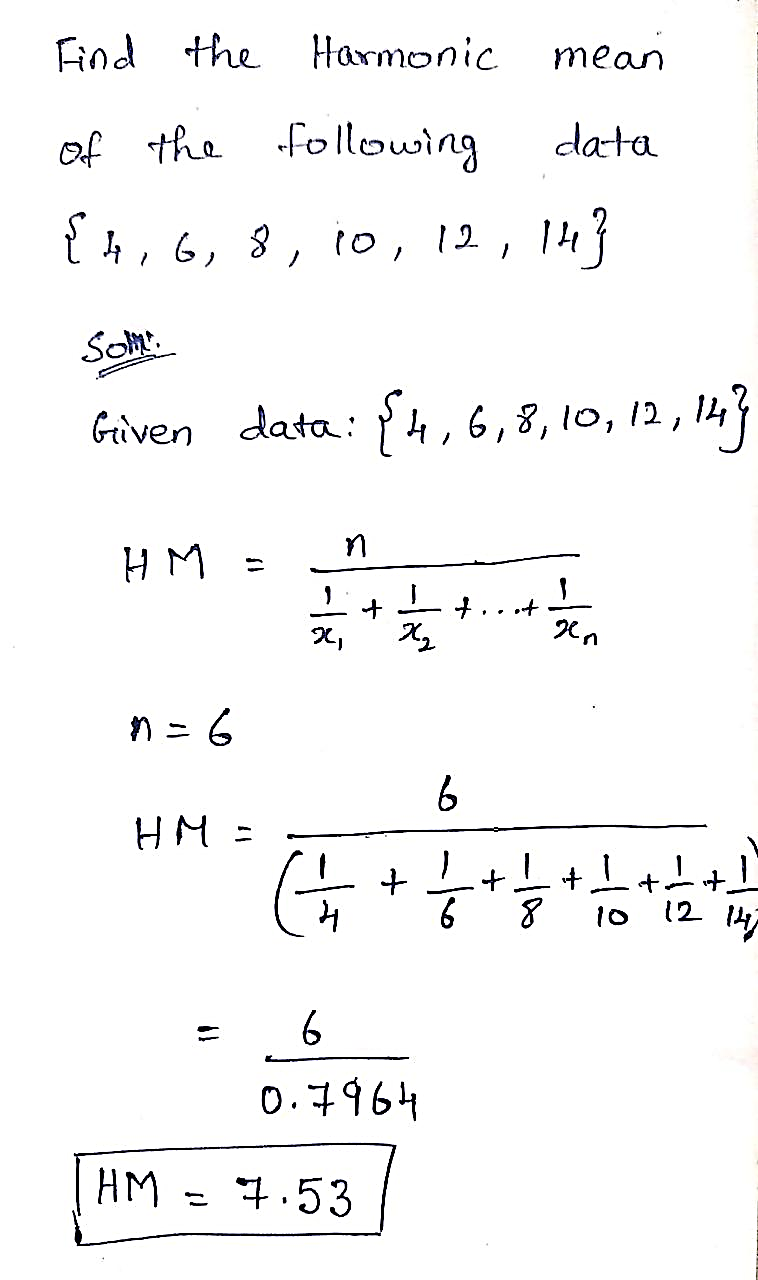 Find the Harmonic mean
of the following data
{4, 6, 8, 10, 12, 14}
Given data: {4, 6, 8, 10, 12, 14}
HM = n / (1/x₁ + 1/x₂ + ... + 1/xₙ)
n = 6
HM = 6 / (1/4 + 1/6 + 1/8 + 1/10 + 1/12 + 1/14)
= 6 / 0.7964
HM = 7.53